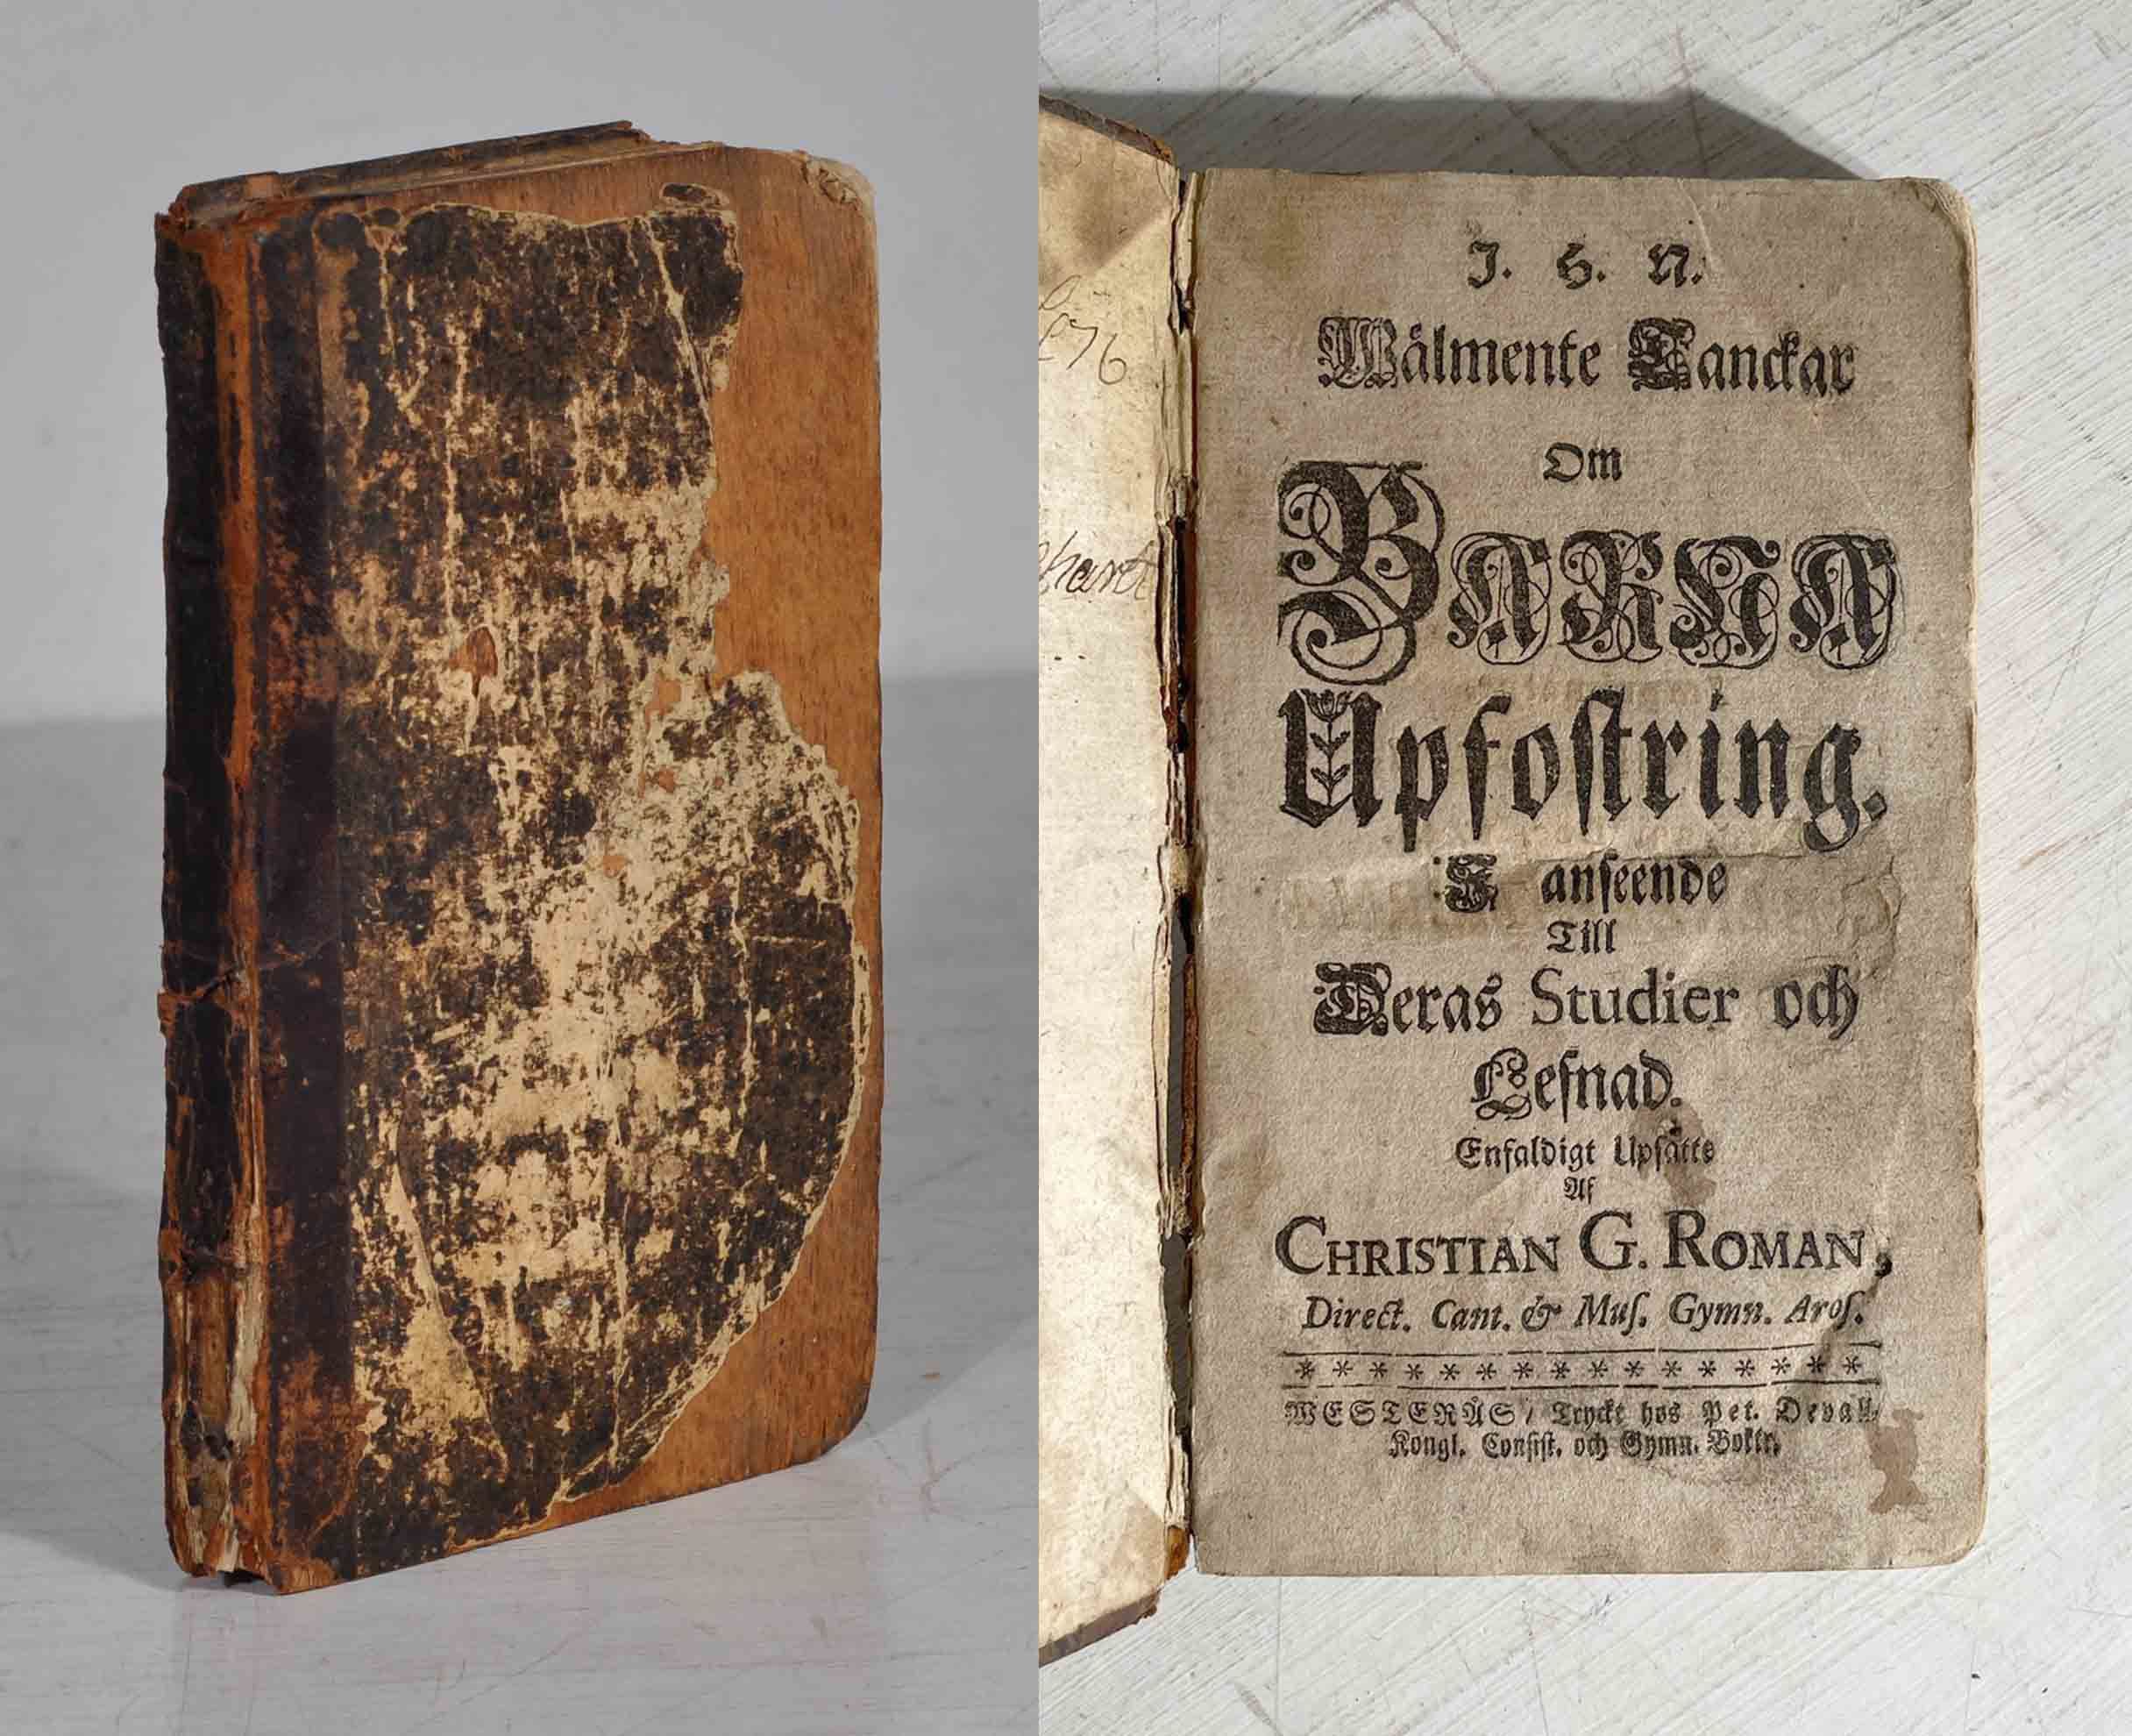 276
J. H. N.
Wälmente Tanckar
Om
BARNA
Upfostring,
I anseende
Till
Deras Studier och
Lefnad.
Enfaldigt Upsatte
Af
CHRISTIAN G. ROMAN,
Direct. Cant. & Mus. Gymn. Aros.
* * * * * * * * * * * * * * * *
WESTERÅS / Tryckt hos Pet. Devall,
Kongl. Consist. och Gymn. Boktr.